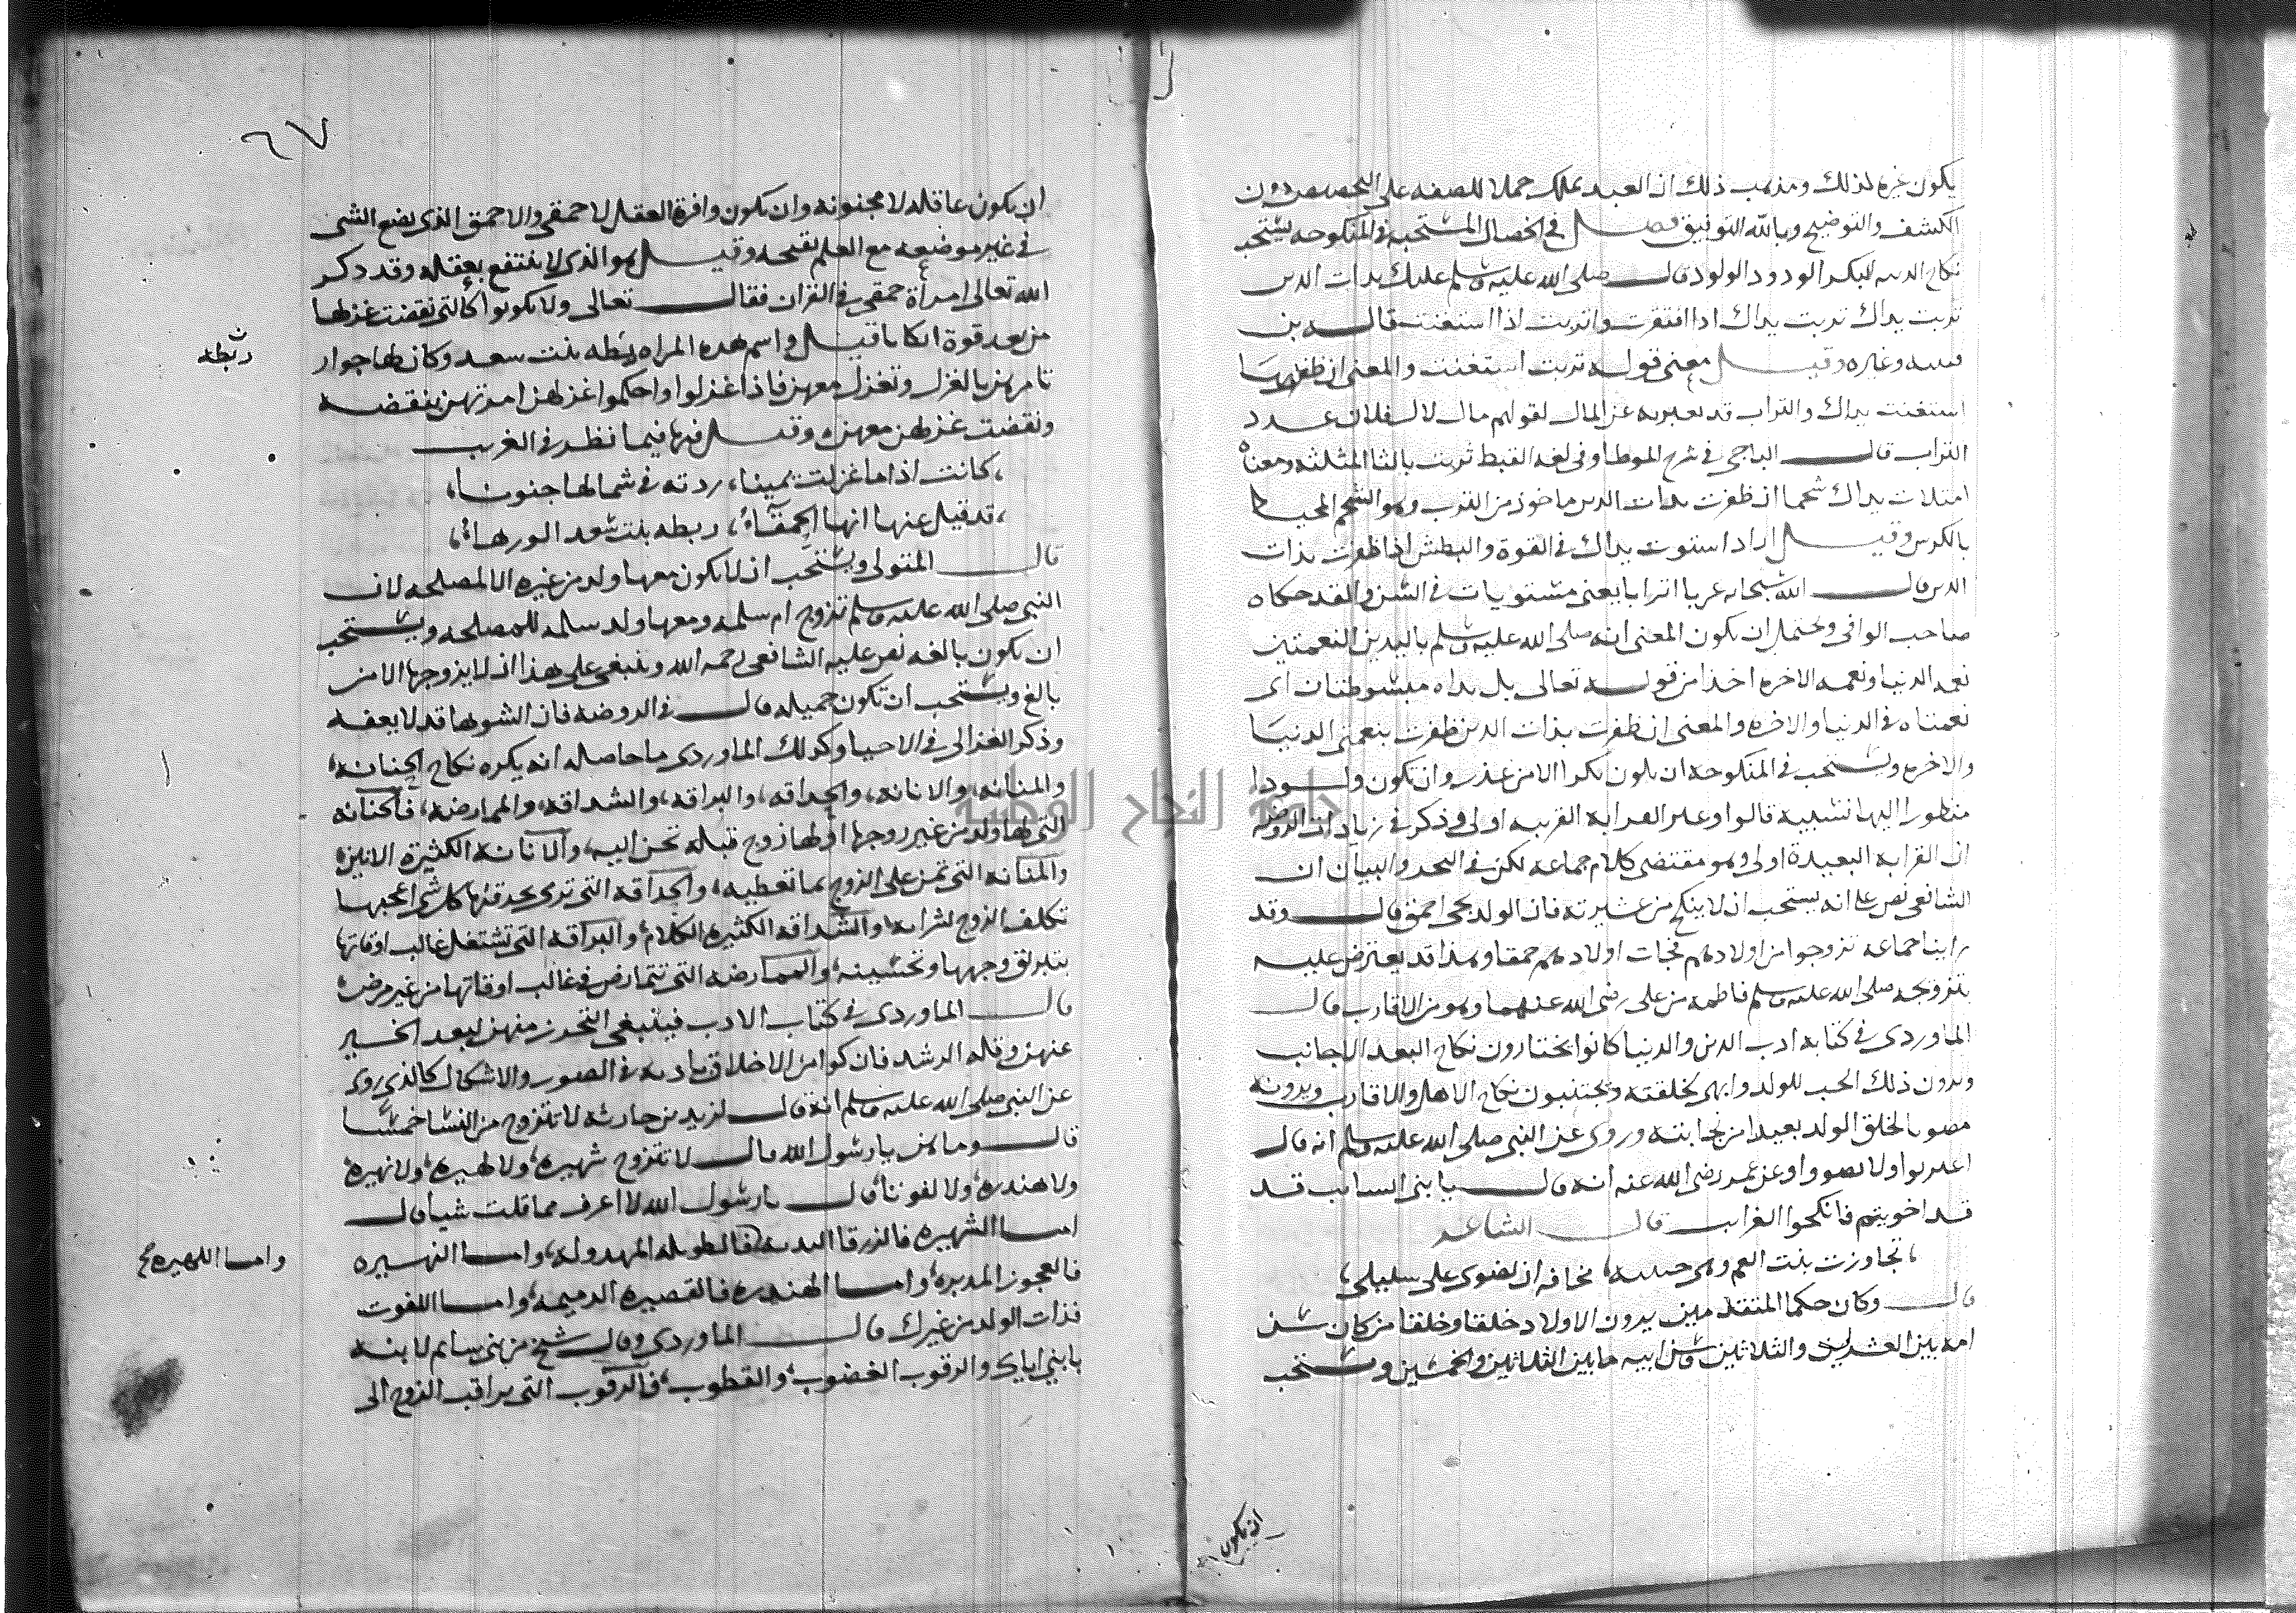 يكون غيره لذلك ومذهب ذلك ان العبد يملك حملا للصفه على التخصيص دون
الكشف والتوضيح وبالله التوفيق فصل في الخصال المستحبه في المنكوحه يستحب
نكاح الدينه البكر الودود الولود قال صلى الله عليه وسلم عليك بذات الدين
تربت يداك تربت يداك اذا افتقرت واتربت اذا استغنت قاله بن
وغيره وقيل معنى قوله تربت استغنت والمعنى ان ظفرت بها
استغنت يداك والتراب قد يعبر به عن المال لقولهم مال لال فلان عدد
التراب قال الباجي في شرح الموطا وفي لغه القبط ثربت بالثا المثلثه ومعناه
امتلات يداك شحما ان ظفرت بذات الدين ماخوذ من الثرب وهو الشحم المحيط
بالكرش وقيل اراد استوت يداك في القوة والبطش اذا ظفرت بذات
الدين قال الله سبحانه عربا اترابا يعني مستويات في السن والقد حكاه
صاحب الوافي ويحتمل ان يكون المعنى انه صلى الله عليه وسلم باليدين النعمتين
نعمه الدنيا ونعمه الاخره اخذا من قوله تعالى بل يداه مبسوطتان اي
نعمتاه في الدنيا والاخره والمعنى ان ظفرت بذات الدين ظفرت بنعمتي الدنيا
والاخره ويستحب في المنكوحه ان يكون بكرا الا من عذر وان تكون ولودا
منظورا اليها نسيبه قالوا وغير القرابه القريبه اولى وذكر في زيادات الروضه
ان القرابه البعيدة اولى وهو مقتضى كلام جماعه لكن في البحر والبيان ان
الشافعي نص على انه يستحب ان لا ينكح من عشيرته فان الولد يجي احمق قال وقد
راينا جماعه تزوجوا من اولادهم فجات اولادهم حمقا وهذا قد يعترض عليه
بتزويجه صلى الله عليه وسلم فاطمه من على رضى الله عنهما وهو من الاقارب قال
الماوردي في كتابه ادب الدين والدنيا كانوا يختارون نكاح البعد الاجانب
ويرون ذلك انجب للولد وابهى لخلقته ويجتنبون نكاح الاهل والاقارب ويرونه
مضرا بخلق الولد بعيدا من نجابته وروى عن النبى صلى الله عليه وسلم انه قال
اغتربوا ولا تضووا وعن عمر رضى الله عنه انه قال يا بنى السايب قد
قد اضويتم فانكحوا الغرايب قال الشاعر
تجاوزت بنت العم وهى حبيبه، مخافه ان يضوى على سليلى
قال وكان حكما المتقدمين يرون الاولاد خلقا وخلقا من كان سن
امه بين العشرين والثلاثين وسن ابيه ما بين الثلاثين والخمسين ويستحب
ان يكون
٦٧
ان يكون عاقله لا مجنونه وان يكون وافرة العقل لا حمقى والاحمق الذى يضع الشى
فى غير موضعه مع العلم بقبحه وقيل هو الذى لا ينتفع بعقله وقد ذكر
الله تعالى امراة حمقى فى القران فقال تعالى ولا تكونوا كالتى نقضت غزلها
من بعد قوة انكاثا قيل واسم هذه المراه ريطه بنت سعد وكان لها جوار
ريطه
تامرهن بالغزل وتغزل معهن فاذا غزلوا واحكموا غزلهن امرتهن بنقضه
ونقضت غزلهن معهن وقيل فيها فيما نظر فى الغريب
كانت اذا ما غزلت يمينا، ردته فى شمالها جنونا،
قد قيل عنها انها الحمقاء، ريطه بنت سعد الورهاء،
قال المتولى ويستحب ان لا يكون معها ولد من غيره الا لمصلحه لان
النبى صلى الله عليه وسلم تزوج ام سلمه ومعها ولد سلمه للمصلحه ويستحب
ان يكون بالغه نص عليه الشافعى رحمه الله وينبغى على هذا ان لا يزوجها الا من
بالغ ويستحب ان تكون جميله قال فى الروضه فان الشوها قد لا يعفه
وذكر الغزالى فى الاحيا وكذلك الماوردى ما حاصله انه يكره نكاح الحنانه،
والمنانه، والانانه، والحداقه، والبراقه، والشداقه، والممارضه، فالحنانه
التى لها ولد من غير زوجها او لها زوج قبله تحن اليه، والانانه الكثيرة الانين،
والمنانه التى تمن على الزوج بما تعطيه، والحداقه التى ترى بحدقتها كل شى اعجبها
تكلف الزوج لشرايه، والشداقه الكثيره الكلام، والبراقه التى تشتغل غالب اوقاتها
بتبريق وجهها وتحسينه، والممارضه التى تتمارض فى غالب اوقاتها من غير مرض،
قال الماوردى فى كتاب الادب فينبغى التحرز منهن لبعد الخير
عنهن وقله الرشد فان كوامن الاخلاق باديه فى الصور والاشكال كالذى روى
عن النبى صلى الله عليه وسلم انه قال لزيد بن حارثه لا تتزوج من النسا خمسا
قال وما هن يا رسول الله قال لا تتزوج شهبره، ولا لهبره، ولا نهبره،
ولا هندره، ولا لفوتا، قال يا رسول الله لا اعرف مما قلت شيا قال
اما الشهبره فالزرقا البديه فالطويله المهزوله، واما النهبره
واما اللهبره صح
فالعجوز المدبره، واما الهندره فالقصيره الدميمه، واما اللفوت
فذات الولد من غيرك قال الماوردى وقال شيخ من بنى سليم لابنه
يا بني اياك والرقوب الغضوب، والقطوب، فالرقوب التى يراقب الزوج الى
جامعة النجاح الوطنية